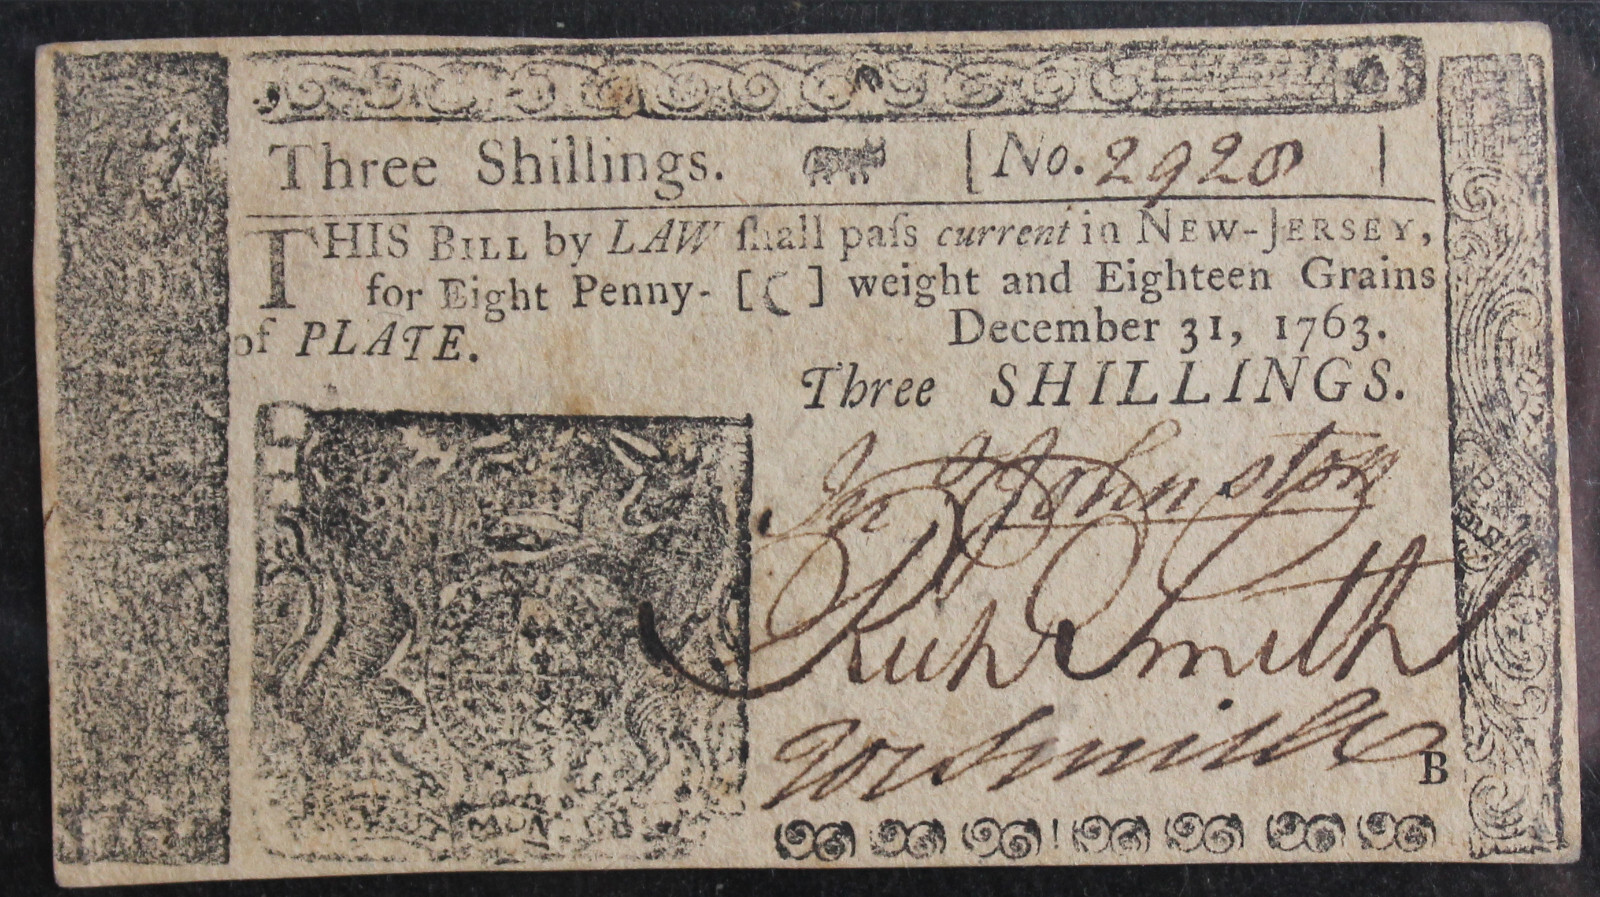 Three Shillings. [No. 2920 ]
THIS BILL by LAW ſhall paſs current in NEW-JERSEY,
for Eight Penny- [ ( ] weight and Eighteen Grains
of PLATE. December 31, 1763.
Three SHILLINGS.
Jn Johnston
Richd Smith
Smith
B